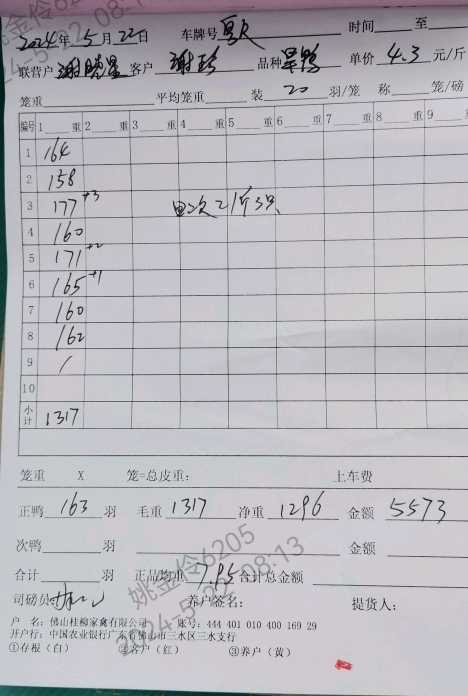 2024年5月22日 车牌号 时间 至
联营户 谢晓星 客户 谢珍 品种 旱鸭 单价 4.3 元/斤
笼重 平均笼重 装 20 羽/笼 称 笼/磅
编号 1 重 2 重 3 重 4 重 5 重 6 重 7 重 8 重 9
1 164
2 158
3 177+3 2斤3只
4 160
5 171+2
6 165+1
7 160
8 162
9 /
10
小计 1317
笼重 X 笼=总皮重: 上车费
正鸭 163 羽 毛重 1317 净重 1296 金额 5573
次鸭 羽 金额
合计 羽 正品均重 7.95 合计总金额
司磅员 养户签名: 提货人:
户 名: 佛山桂柳家禽有限公司 账号: 444 401 010 400 169 29
开户行: 中国农业银行广东省佛山市三水区三水支行
①存根(白) ②客户(红) ③养户(黄)
姚金伶6205
2024-5-22 08:13